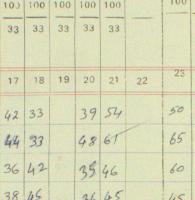 100 100 100 100 100 100
33 33 33 33 33 33
17 18 19 20 21 22 23
42 33 39 54 50
44 33 48 61 65
36 42 39 46 60
38 45 36 45 45